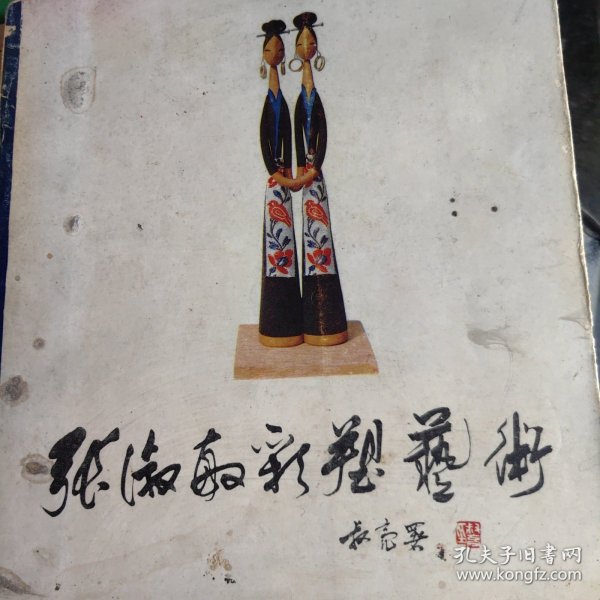 張淑敏彩塑藝術
叔亮署
孔夫子旧书网
www.kongfz.com